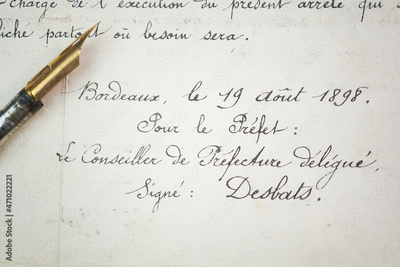 chargé de l'exécution du présent arrêté qui
fiché partout où besoin sera.
Bordeaux, le 19 août 1898.
Pour le Préfet :
Le Conseiller de Préfecture délégué,
Signé : Desbats.
Adobe Stock | #471022221